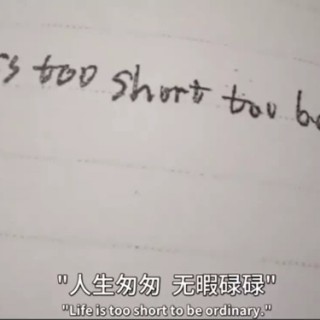 's too short too be
"人生匆匆 无暇碌碌"
"Life is too short to be ordinary."